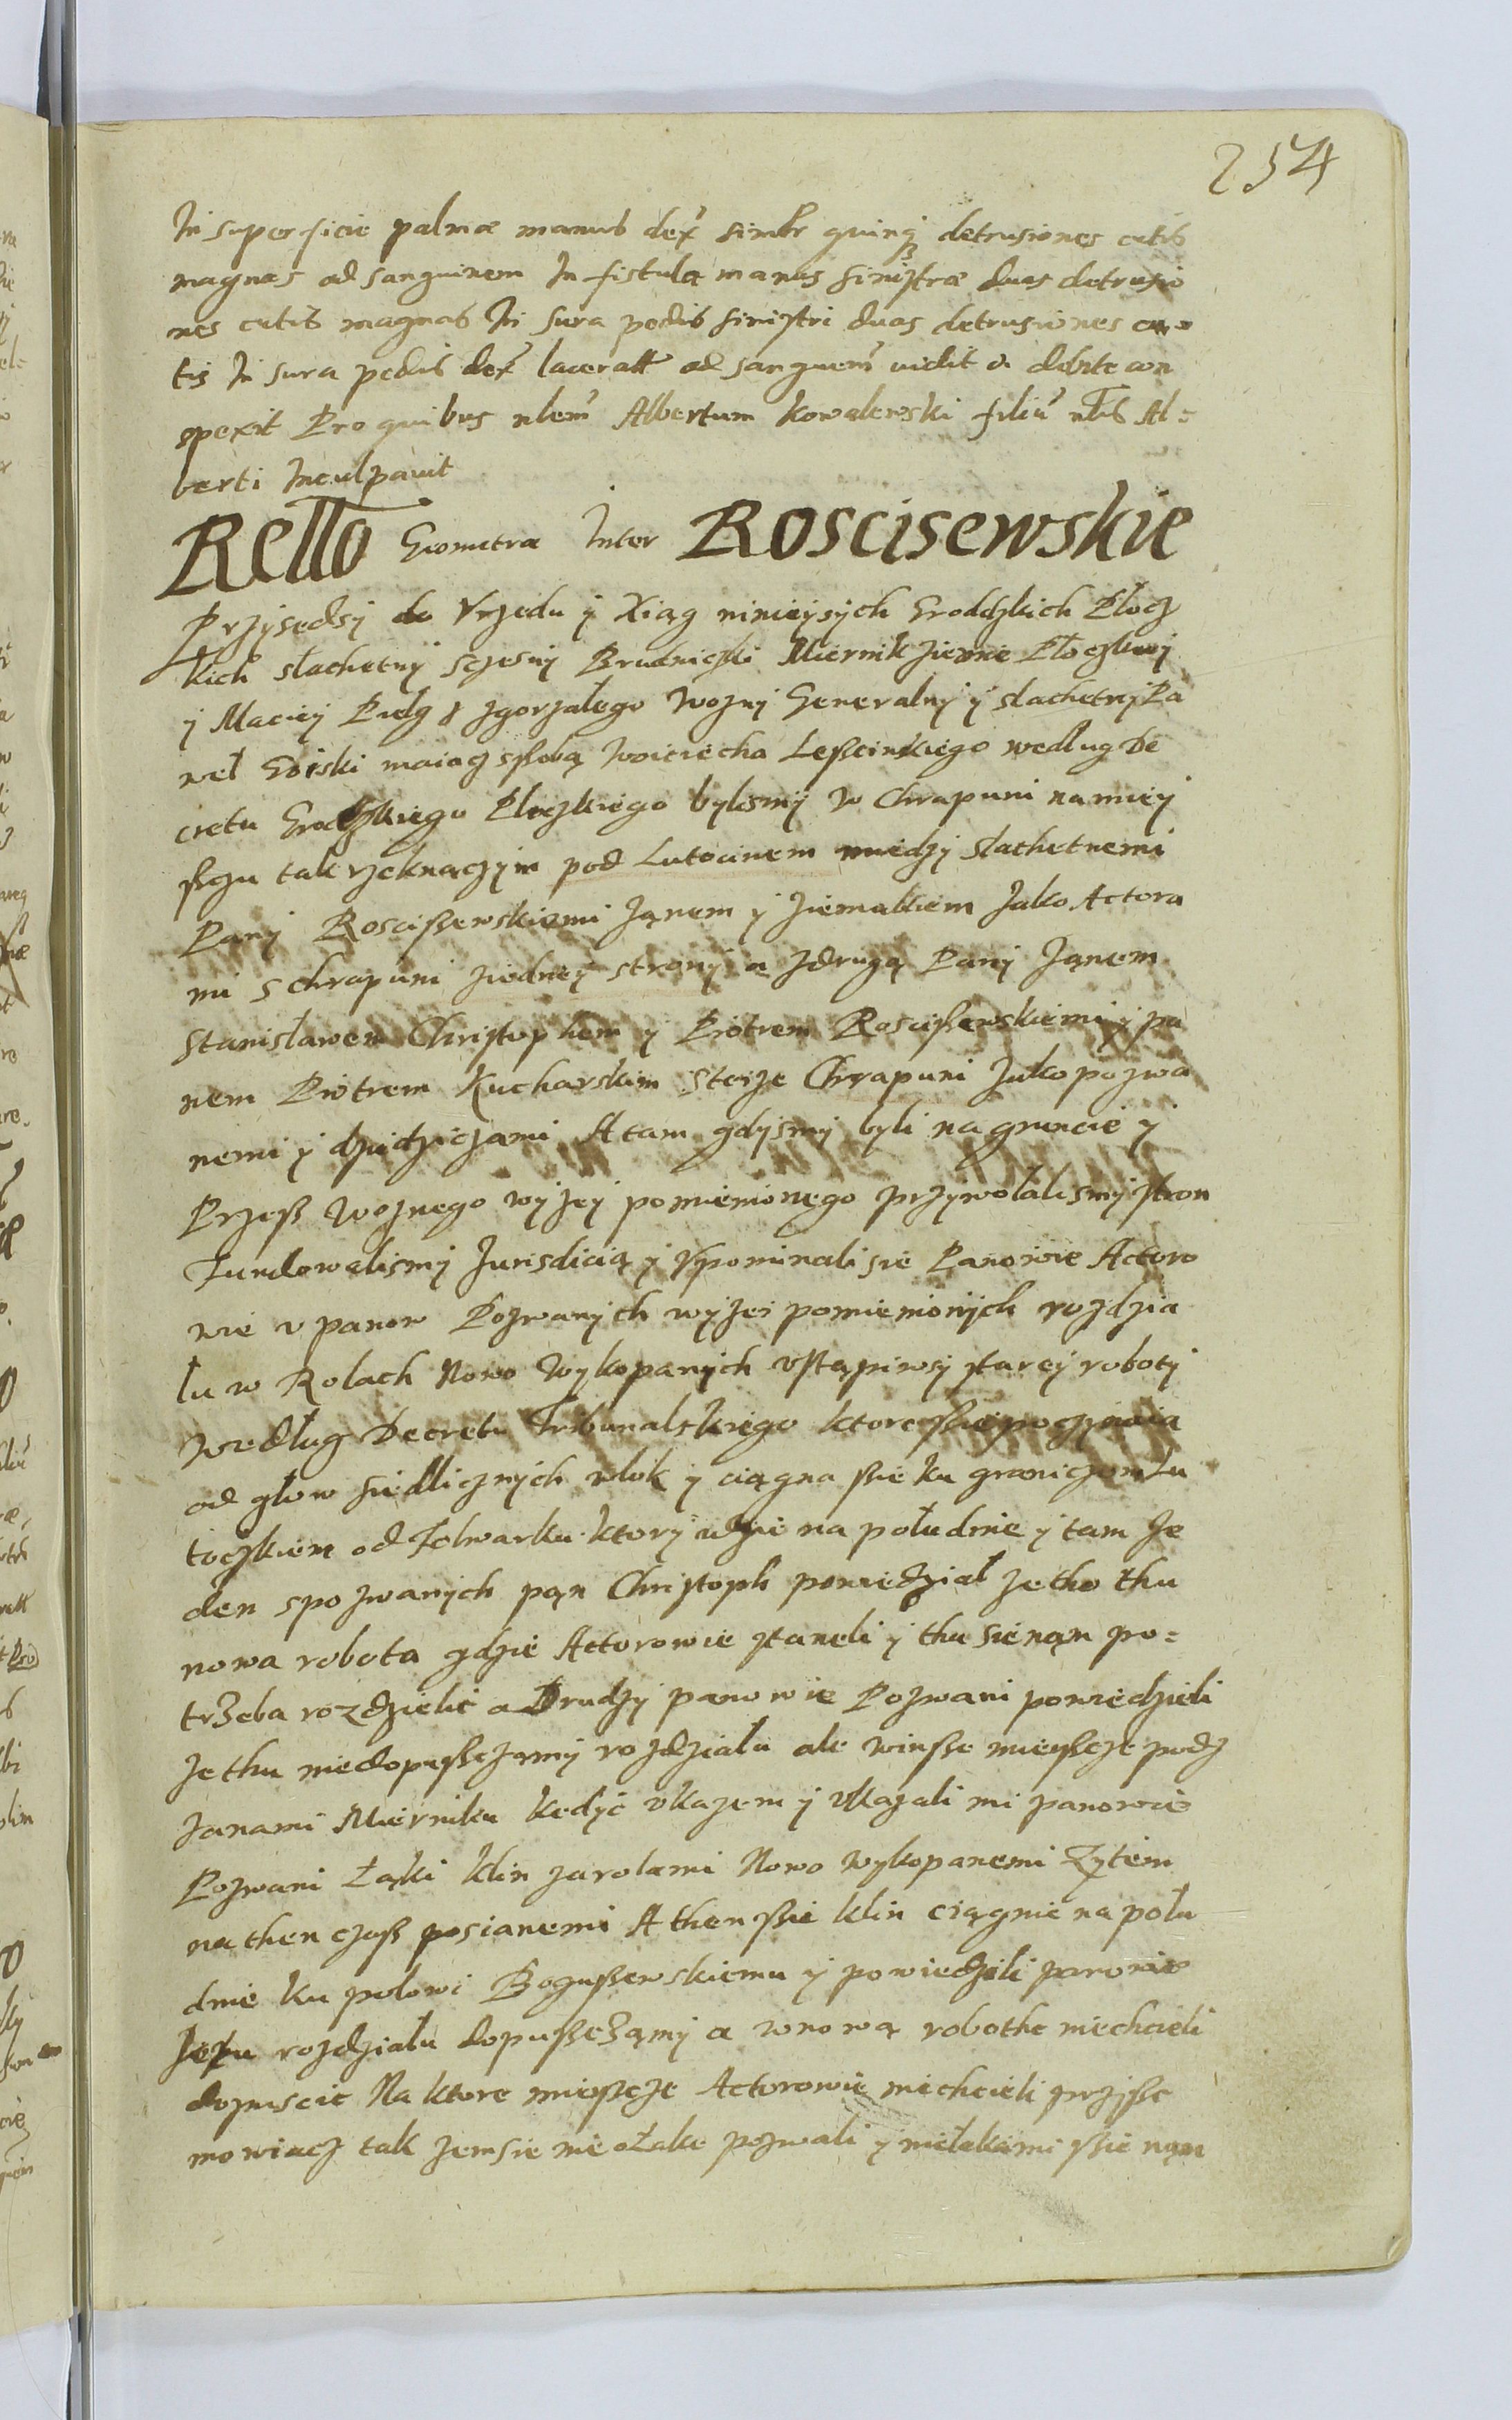 254
In superficie palmæ manus dex̃ similr quinq̃ detrusiones cutis
magnas ad sanguinem In fistula manus sinistræ duas detrusio
nes cutis magnas In sura pedis sinistri duas detrusiones cu
tis In sura pedis dex̃ laceratt ad sanguem̃ vidit & debite con
spexit Pro quibus nlem̃ Albertum Kowalewski filiũ nlis Al=
berti Inculpavit
Rello Geometræ Inter Roscisewskie
Przysedsy do Vrzedu y Xiąg ninieysych Groddzkich Plocz
kich slachetny sczesny Brudniczki Miernik ziemie Ploczkiey
y Maciey Pielg z zgorzałego Wozny Generalny y slachetny Pa
weł Gorski maiąc s ssobą Woiciecha Lesscinskiego według De
cretu Grodzkiego Ploczkiego bylismy w Chrapuni na miey
ssczu tak rzeknaczym pod Lutocinem miedzy slachetnemi
Pany Roscissewskiemi Janem y Ziemakiem Jako Actora
mi s chrapuni ziedney strony a zdrugą Pany Janem
Stanisławem Christophem y Piotrem Roscissewskiemi y pa
nem Piotrem Kucharskim steize Chrapuni Jako pozwa
nemi y dziedziczami A tam gdysmy byli na gruncie y
Przess Woznego wyzey pomienionego przywolalismy stron
Fundowalismy Jurisdicią y Vpominali sie Panowie Actoro
wie v panow Pozwanych wyzei pomienionych rozdzia
łu w Rolach Nowo Wykopanych vstąpiwsy starey roboty
według Decretu Tribunalskiego ktore ssie poczynaia
od głow siedlicznych włok y ciągna ssie ku graniczom Lu
toczkiem od Folwarku ktory idzie na południe y tam Je
den spozwanych pan Christoph powiedział ze tho thu
nowa robota gdzie Actorowie staneli y thu sie nąm po=
trzeba rozdzielic a Drudzy panowie Pozwani powiedzieli
ze thu niedopussczamy rozdziału ale winsse mieysscze podz
zanami Mierniku kedyc vkazem y Vkazali mi panowie
Pozwani Łąki klin zarolami Nowo Wykopanemi Zytem
na then czass posianemi A then ssie klin ciągnie na połu
dnie ku polowi Bogussewskiemu y powiedzili panowie
ze tu rozdziału dopussczamy a wnową robothe niechcieli
dopuscic Na ktore mieyscze Actorowie niechcieli przyssc
mowiacz tak zemsie nie o Łake pozwali y nie łakami ssie nąm